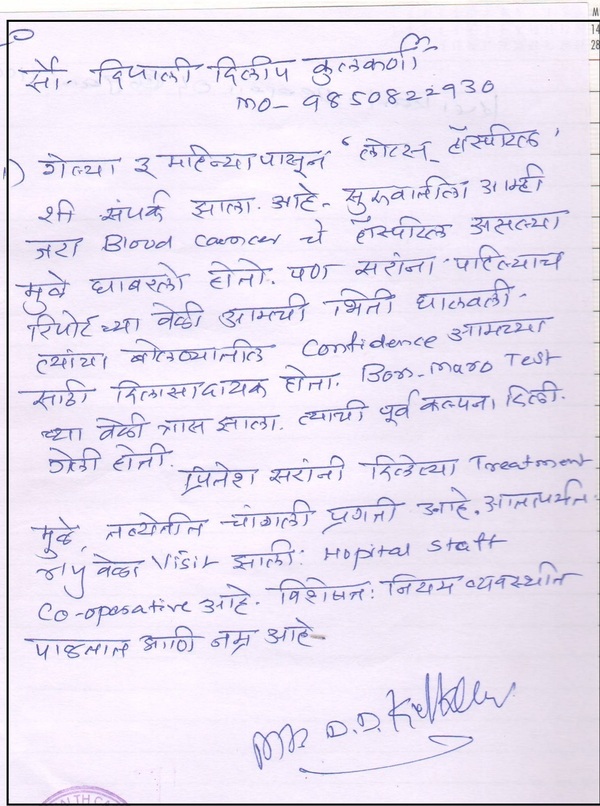 सौ. दिपाली दिलीप कुलकर्णी
MO- 9850822930
1) गेल्या ३ महिन्यापासून 'लोटस् हॉस्पिटल'
शी संपर्क झाला. आहे. सुरुवातीला आम्ही
जरा Blood Cancer चे हॉस्पिटल असल्या
मुळे घाबरलो होतो. पण सरांना पाहिल्याच
रिपोर्टच्या वेळी आमची भिती घालवली.
त्यांच्या बोलण्यातील Confidence आमच्या
साठी दिलासादायक होता. Bon-maro Test
च्या वेळी त्रास झाला. त्याची पूर्व कल्पना दिली.
गेली होती.
प्रितेश सरांनी दिलेल्या Treatment
मुळे, तब्येतीत चांगली प्रगती आहे. आतापर्यंत
वेळा Visit झाली. Hopital Staff
Co-operative आहे. विशेषतः नियम व्यवस्थीत
पाळतात आणि नम्र आहे.
D.D.
M
14
28